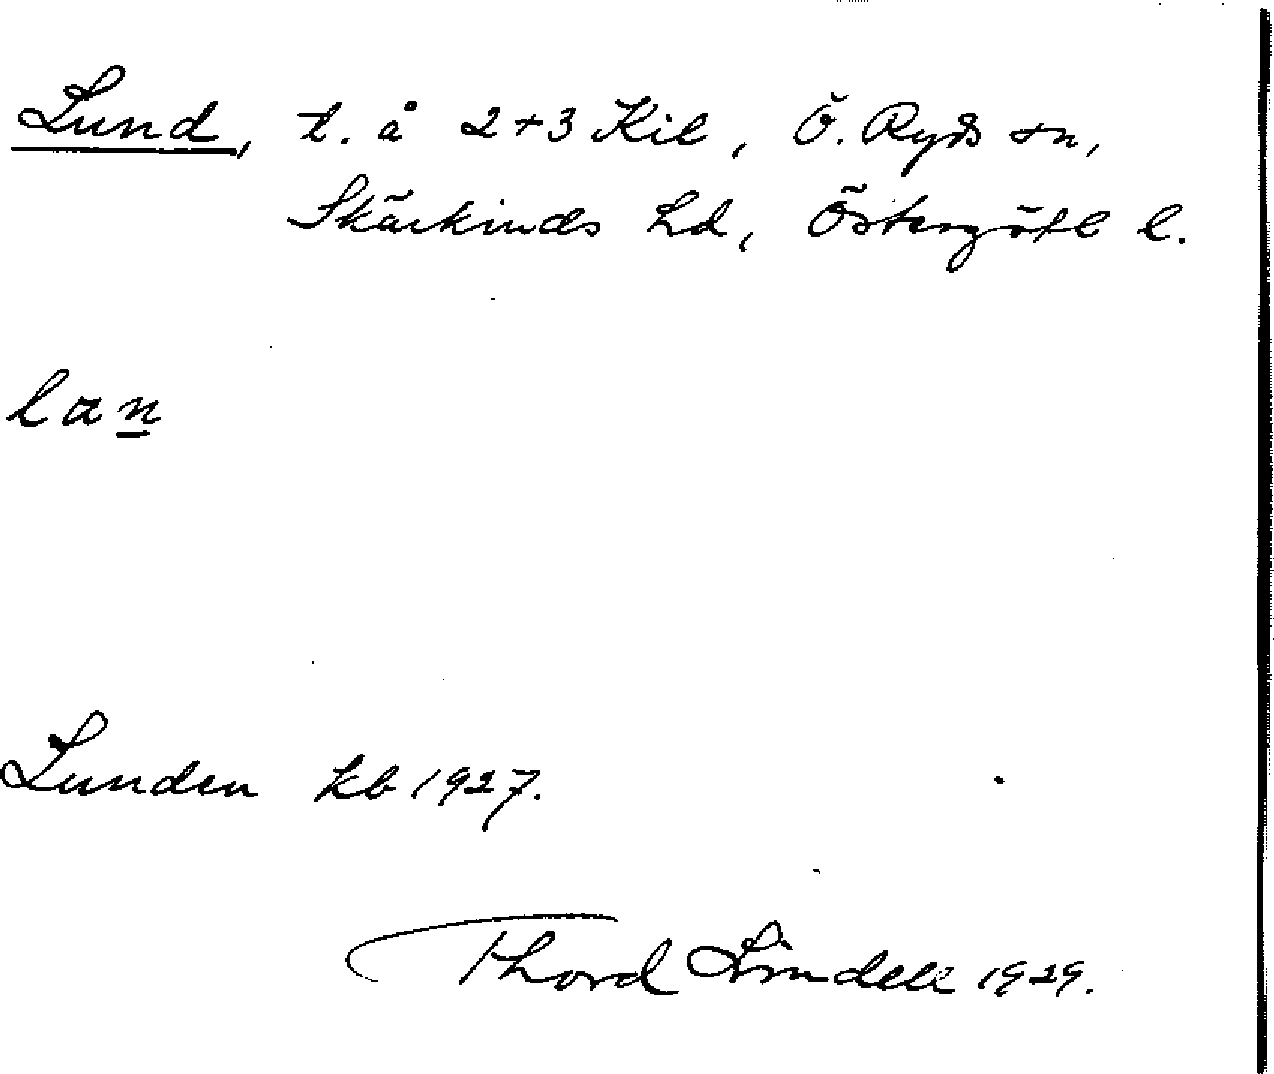 Lund, t. å 2+3 Kil, Ö. Ryds sn,
Skärkinds hd, Östergötl l.
lan
Lunden kb 1927.
Thord Lindell 1929.